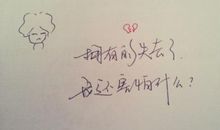 拥有的失去了
我还害怕什么？